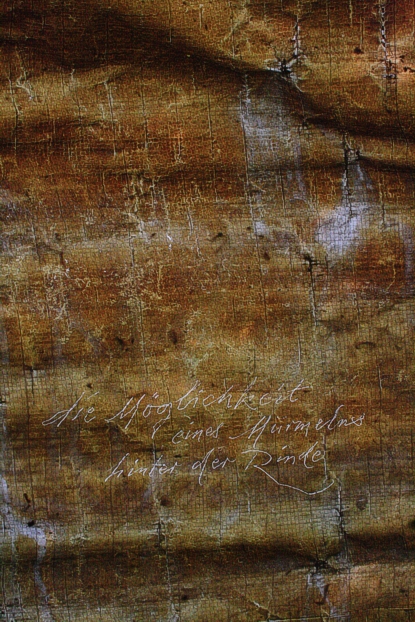 die Möglichkeit
eines Murmelns
hinter der Rinde